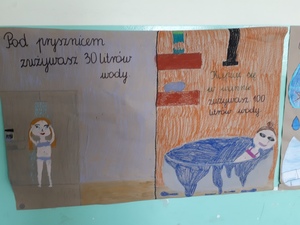 Pod prysznicem
zużywasz 30 litrów
wody
Kąpiąc się
w wannie
zużywasz 100
litrów wody